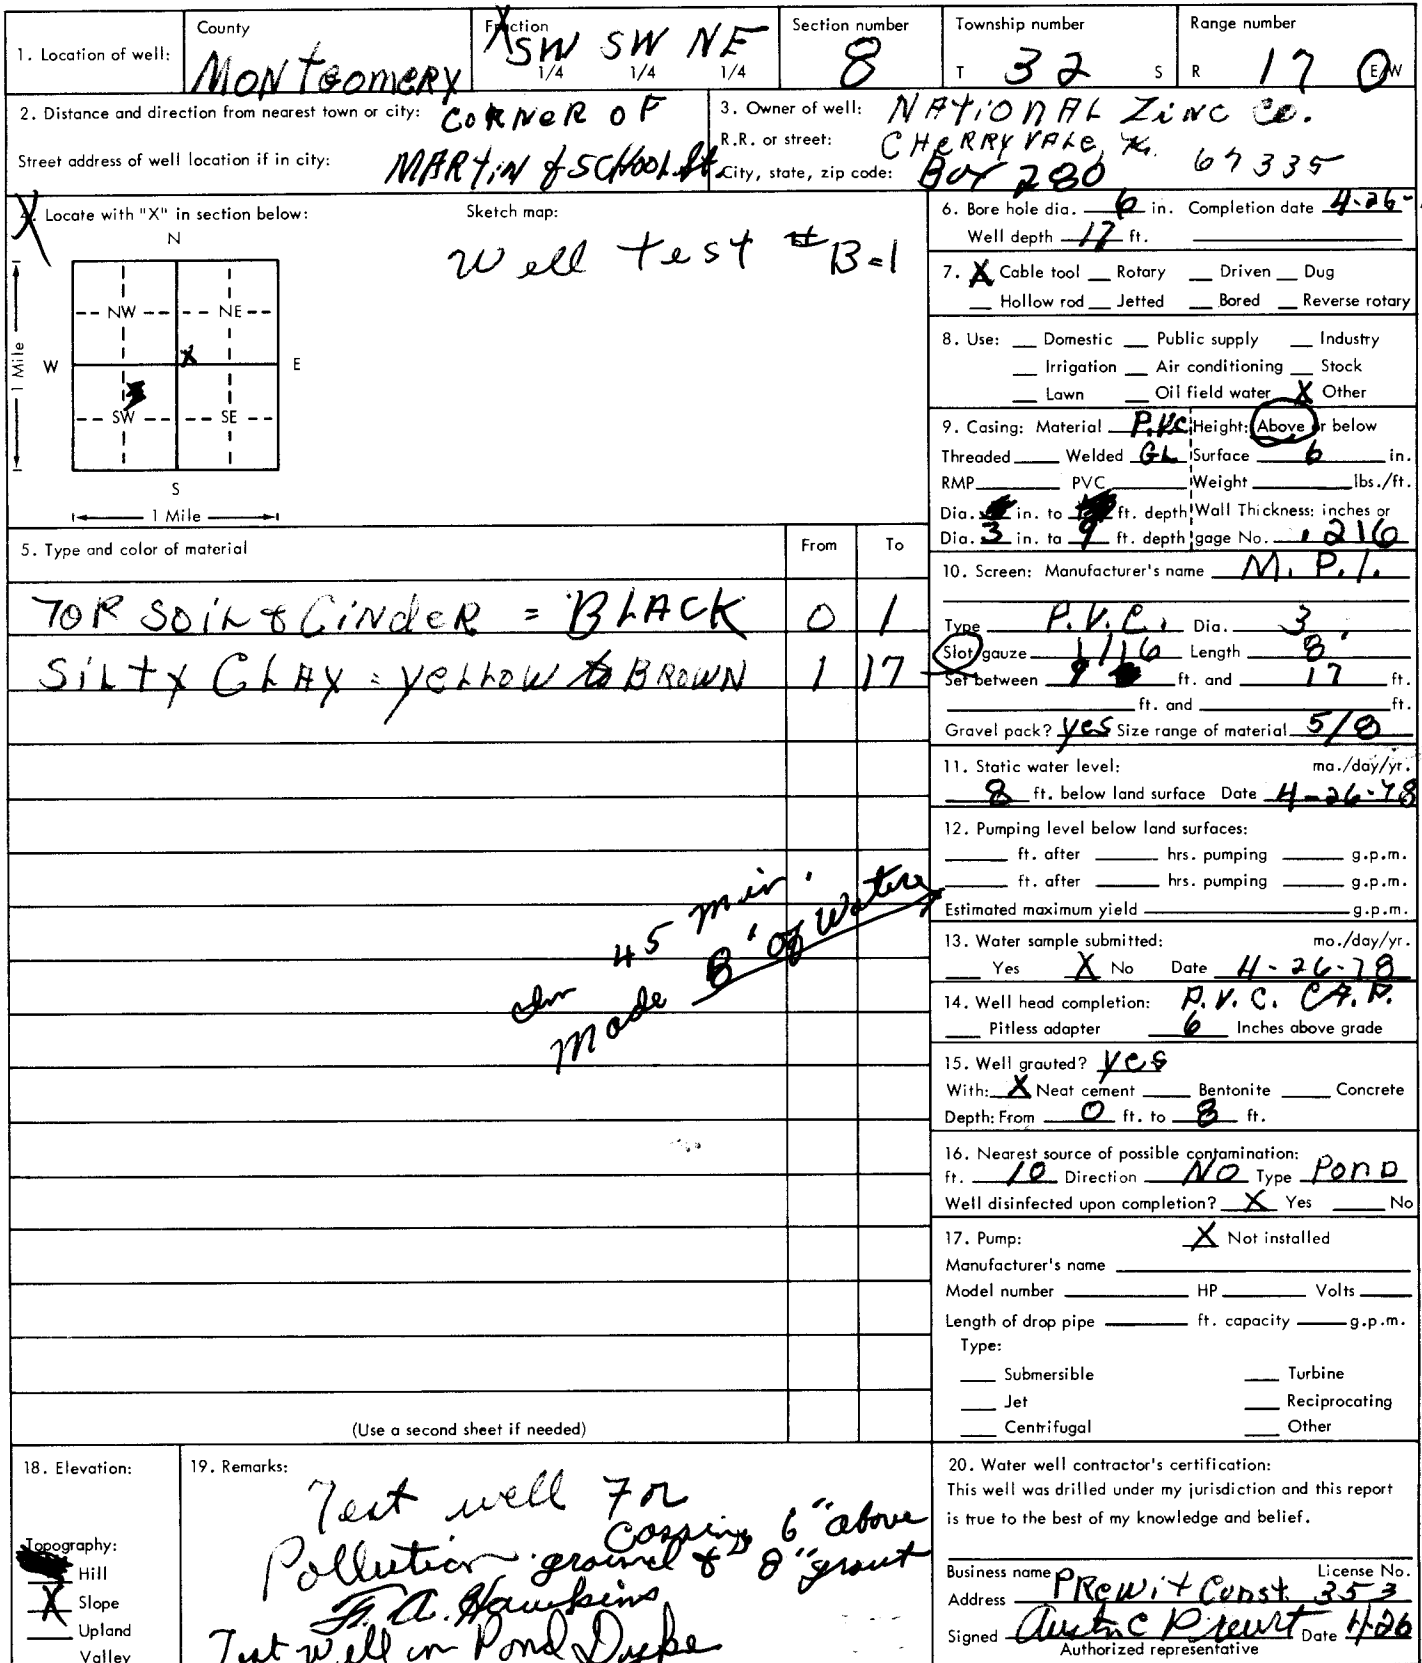 1. Location of well:
County
MONTGOMERY
Fraction
X SW SW NE
1/4 1/4 1/4
Section number
8
Township number
T 32 S
Range number
R 17 E/W
2. Distance and direction from nearest town or city: CORNER OF
Street address of well location if in city: MARTIN & SCHOOL St.
3. Owner of well: NATIONAL ZINC Co.
R.R. or street: CHERRYVALE, 67335
City, state, zip code: Box 280
4. Locate with "X" in section below:
N
NW NE
W E
X
SW SE
S
1 Mile
1 Mile
Sketch map:
Well test #B-1
5. Type and color of material From To
TOP SOIL & CINDER = BLACK 0 1
SILTY CLAY = YELLOW to BROWN 1 17
45 min.
Made 8' of Water
(Use a second sheet if needed)
6. Bore hole dia. 6 in. Completion date 4-26-
Well depth 17 ft.
7. X Cable tool Rotary Driven Dug
Hollow rod Jetted Bored Reverse rotary
8. Use: Domestic Public supply Industry
Irrigation Air conditioning Stock
Lawn Oil field water X Other
9. Casing: Material P.VC Height: Above or below
Threaded Welded GL Surface 6 in.
RMP PVC Weight lbs./ft.
Dia. in. to ft. depth Wall Thickness: inches or
Dia. 3 in. to 9 ft. depth gage No. .216
10. Screen: Manufacturer's name M.P.I.
Type P.V.C. Dia. 3
Slot/gauze 1/16 Length 8'
Set between 9 ft. and 17 ft.
ft. and ft.
Gravel pack? yes Size range of material 5/8
11. Static water level: mo./day/yr.
8 ft. below land surface Date 4-26-78
12. Pumping level below land surfaces:
ft. after hrs. pumping g.p.m.
ft. after hrs. pumping g.p.m.
Estimated maximum yield g.p.m.
13. Water sample submitted: mo./day/yr.
Yes X No Date 4-26-78
14. Well head completion: P.V.C. CAP.
Pitless adapter 6 Inches above grade
15. Well grouted? yes
With: X Neat cement Bentonite Concrete
Depth: From 0 ft. to 8 ft.
16. Nearest source of possible contamination:
ft. 10 Direction NO Type POND
Well disinfected upon completion? X Yes No
17. Pump: X Not installed
Manufacturer's name
Model number HP Volts
Length of drop pipe ft. capacity g.p.m.
Type:
Submersible Turbine
Jet Reciprocating
Centrifugal Other
18. Elevation:
Topography:
Hill
X Slope
Upland
Valley
19. Remarks:
Test well For
Pollution Cassing 6" above
ground & 8" grout
F. A. Hawkins
Test Well in Pond
20. Water well contractor's certification:
This well was drilled under my jurisdiction and this report
is true to the best of my knowledge and belief.
Business name License No.
Prewitt Const. 353
Address
Signed Date 4-26
Authorized representative